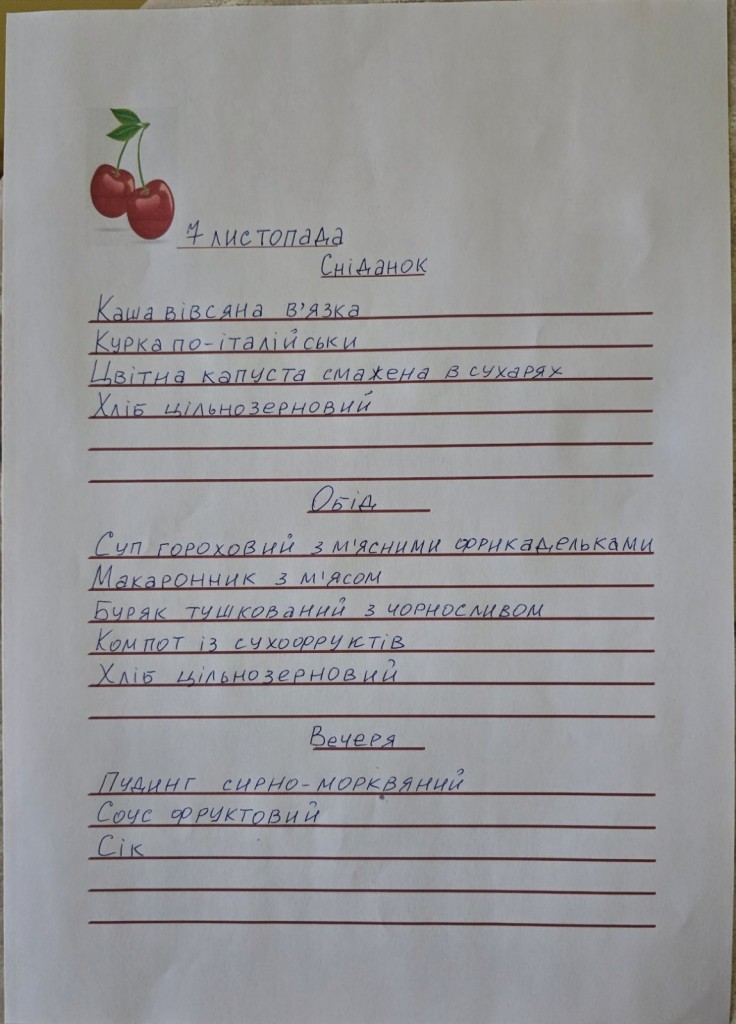 7 листопада
Сніданок
Каша вівсяна в'язка
Курка по-італійськи
Цвітна капуста смажена в сухарях
Хліб цільнозерновий
Обід
Суп гороховий з м'ясними фрикадельками
Макаронник з м'ясом
Буряк тушкований з чорносливом
Компот із сухофруктів
Хліб цільнозерновий
Вечеря
Пудинг сирно-морквяний
Соус фруктовий
Сік